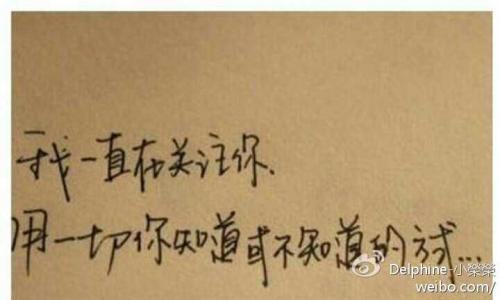 我一直在关注你.
用一切你知道或不知道的方式...
Delphine-小榮榮
weibo.com/